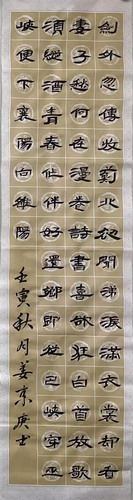 劍外忽傳收薊北初聞涕淚滿衣裳却看
妻子愁何在漫卷詩書喜欲狂白首放歌
須縱酒青春作伴好還鄉即從巴峽穿巫
峽便下襄陽向雒陽
壬寅秋月姜